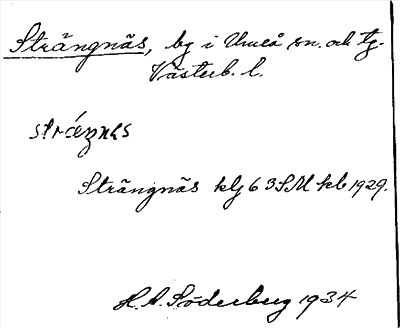 Strängnäs, bg i Umeå sn. och tg.
Västerb. l.
Strängnäs klj 63 SM kb 1929.
H. A. Söderberg 1934